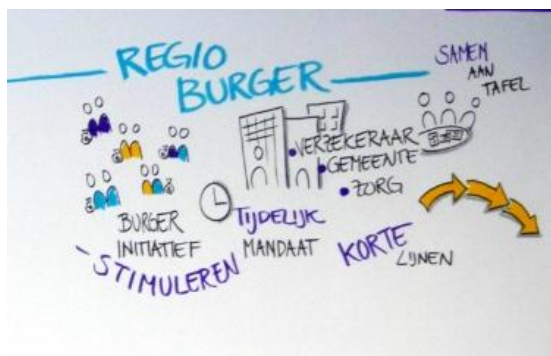 REGIO
BURGER
SAMEN
AAN
TAFEL
• VERZEKERAAR
• GEMEENTE
• ZORG
BURGER
INITIATIEF
- STIMULEREN
TIJDELIJK
MANDAAT
KORTE
LIJNEN